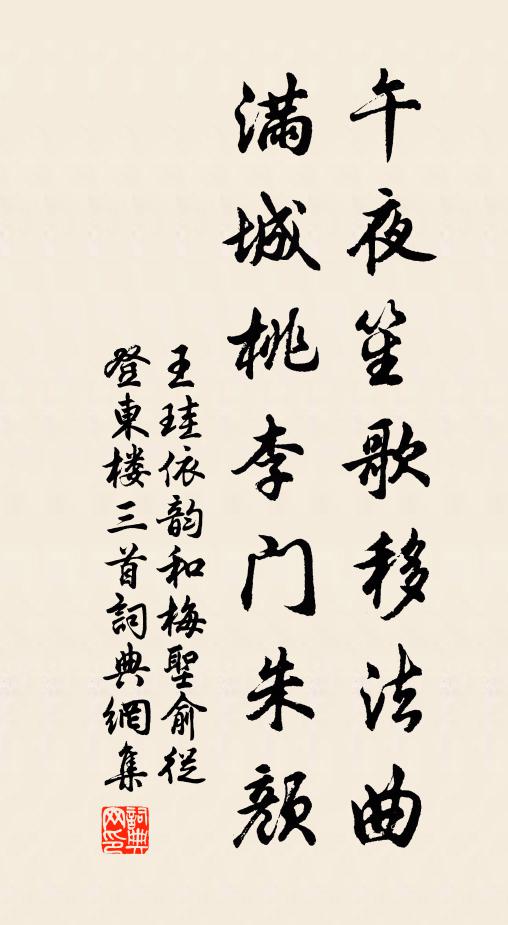 午夜笙歌移法曲
满城桃李门朱颜
王珪依韵和梅聖俞從
登東楼三首詞典網集
詞典网印